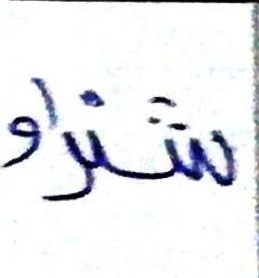 شنراو